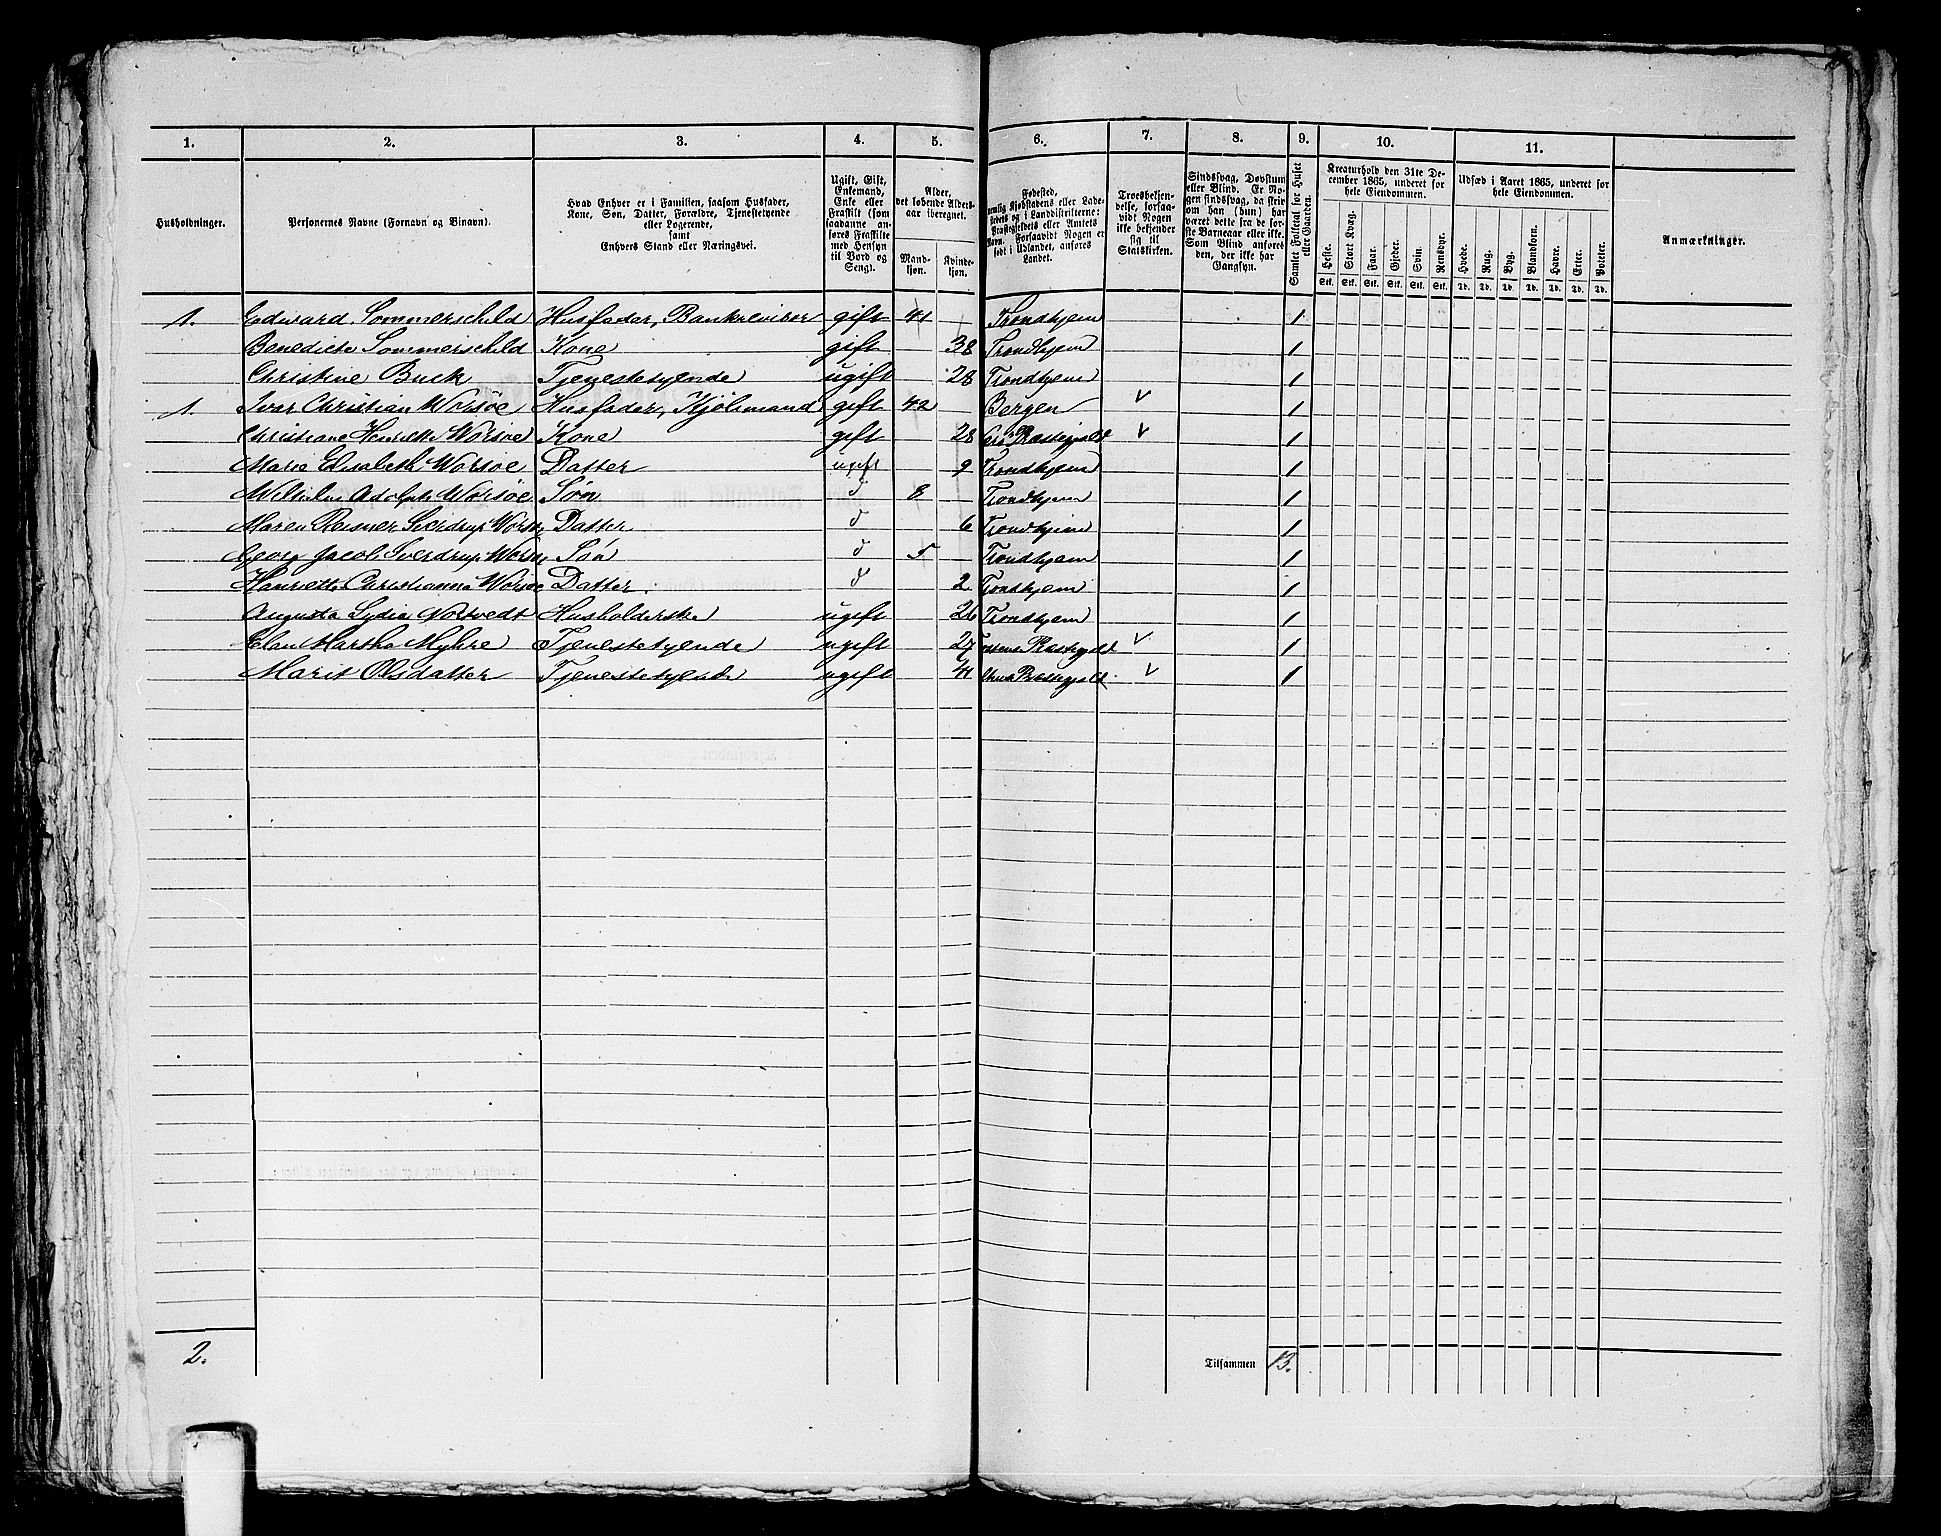 1. 2. 3. 4. 5. 6. 7. 8. 9. 10. 11.
Husholdninger.
Personernes Navne (Fornavn og Binavn).
Hvad Enhver er i Familien, saasom Husfader,
Kone, Søn, Datter, Forældre, Tjenestetyende
eller Logerende,
samt
Enhvers Stand eller Næringsvei.
Ugift, Gift,
Enkemand,
Enke eller
Fraskilt (som
saadanne an-
føres Fraskilte
med Hensyn
til Bord og
Seng).
Alder,
det løbende Alders-
aar iberegnet.
Mand-
kjøn.
Kvinde-
kjøn.
Fødested,
nemlig Kjøbstadens eller Lade-
stedets og i Landdistrikterne:
Præstegjeldets eller Amtets
Navn. Forsaavidt Nogen er
født i Udlandet, anføres
Landet.
Troesbekjen-
delse, forsaa-
vidt Nogen
ikke bekjender
sig til
Statskirken.
Sindssvag, Døvstum
eller Blind. Er No-
gen sindssvag, da skriv
om han (hun) har
været dette fra de før-
ste Barneaar eller ikke.
Som Blind anføres
den, der ikke har
Gangsyn.
Samlet Folketal for Huset
eller Gaarden.
Kreaturhold den 31te De-
cember 1865, underet for
hele Eiendommen.
Heste. Stort Kvæg. Faar. Gjeder. Svin. Rensdyr.
Stk. Stk. Stk. Stk. Stk. Stk.
Udsæd i Aaret 1865, underet for
hele Eiendommen.
Hvede. Rug. Byg. Blandkorn. Havre. Erter. Poteter.
Td. Td. Td. Td. Td. Td. Td.
Anmærkninger.
1. Edward Sommerschild Husfader, Bankrevisor gift 41 Trondhjem 1
Benedicte Sommerschild Kone gift 38 Trondhjem 1
Christine Buck Tjenestetyende ugift 28 Trondhjem 1
1. Iver Christian Worsøe Husfader, Kjøbmand gift 42 Bergen 1
Christiane Henriette Worsøe Kone gift 28 Præstegjeld 1
Marie Elisabeth Worsøe Datter ugift 9 Trondhjem 1
Wilhelm Adolph Worsøe Søn d 8 Trondhjem 1
Maren Reisner Sverdrup Worsøe Datter d 6 Trondhjem 1
Georg Jacob Sverdrup Worsøe Søn d 5 Trondhjem 1
Henriette Christianna Worsøe Datter. d 2 Trondhjem 1
Augusta Lydia Nortvedt Husholderske ugift 26 Trondhjem 1
Martha Myhre Tjenestetyende ugift 27 Præstegjeld 1
Marit Olsdatter Tjenestetyende ugift 41 Præstegjeld 1
2. Tilsammen 13.